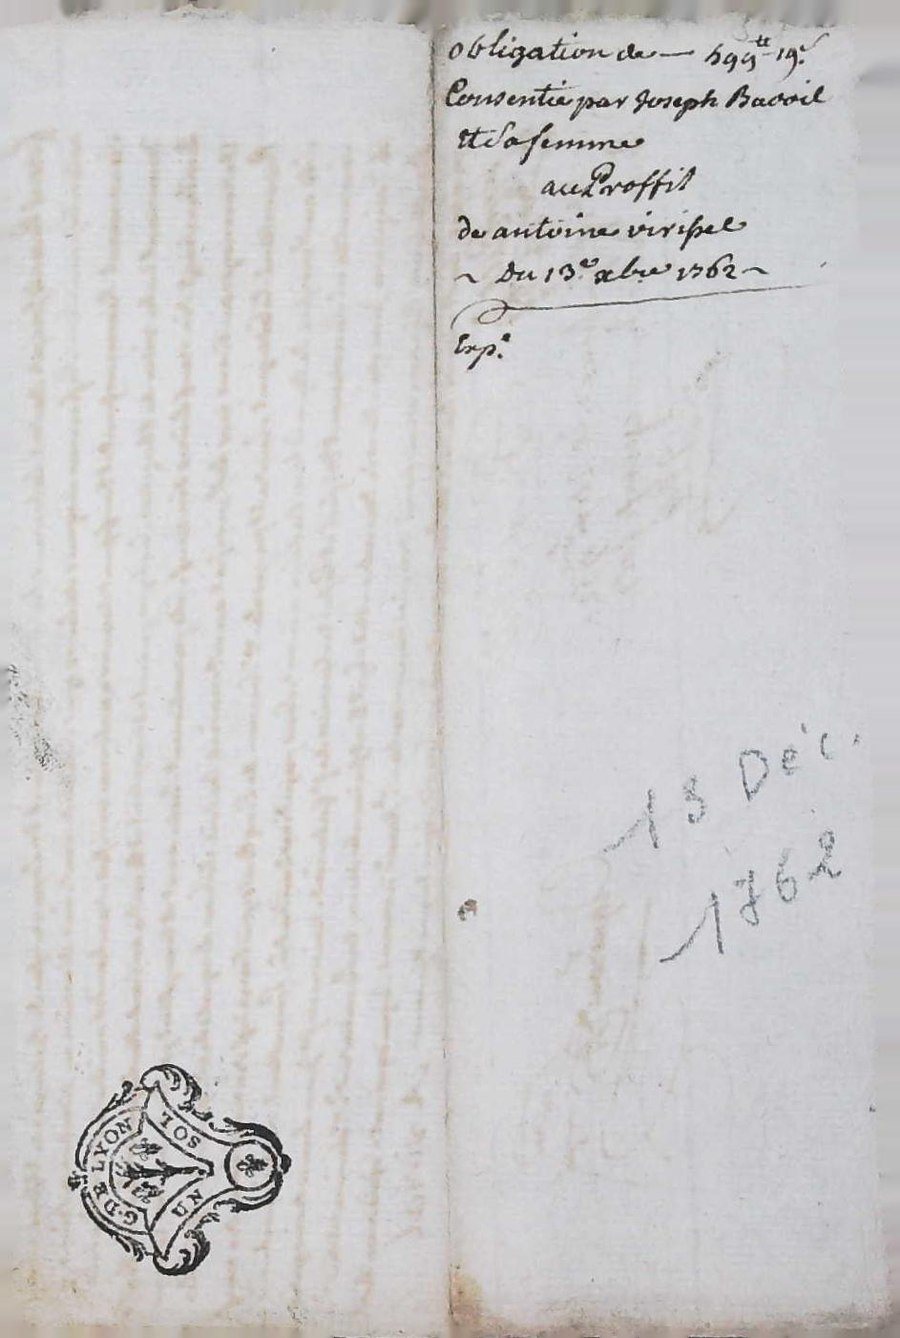 obligation de — 599tt 19s
Consentie par Joseph Bavoil
et Sa femme
au Proffit
de antoine virissel
~ Du 13e xbre 1762 ~
Exp.e
13 Déc.
1762
G. DE LYON
UN SOL